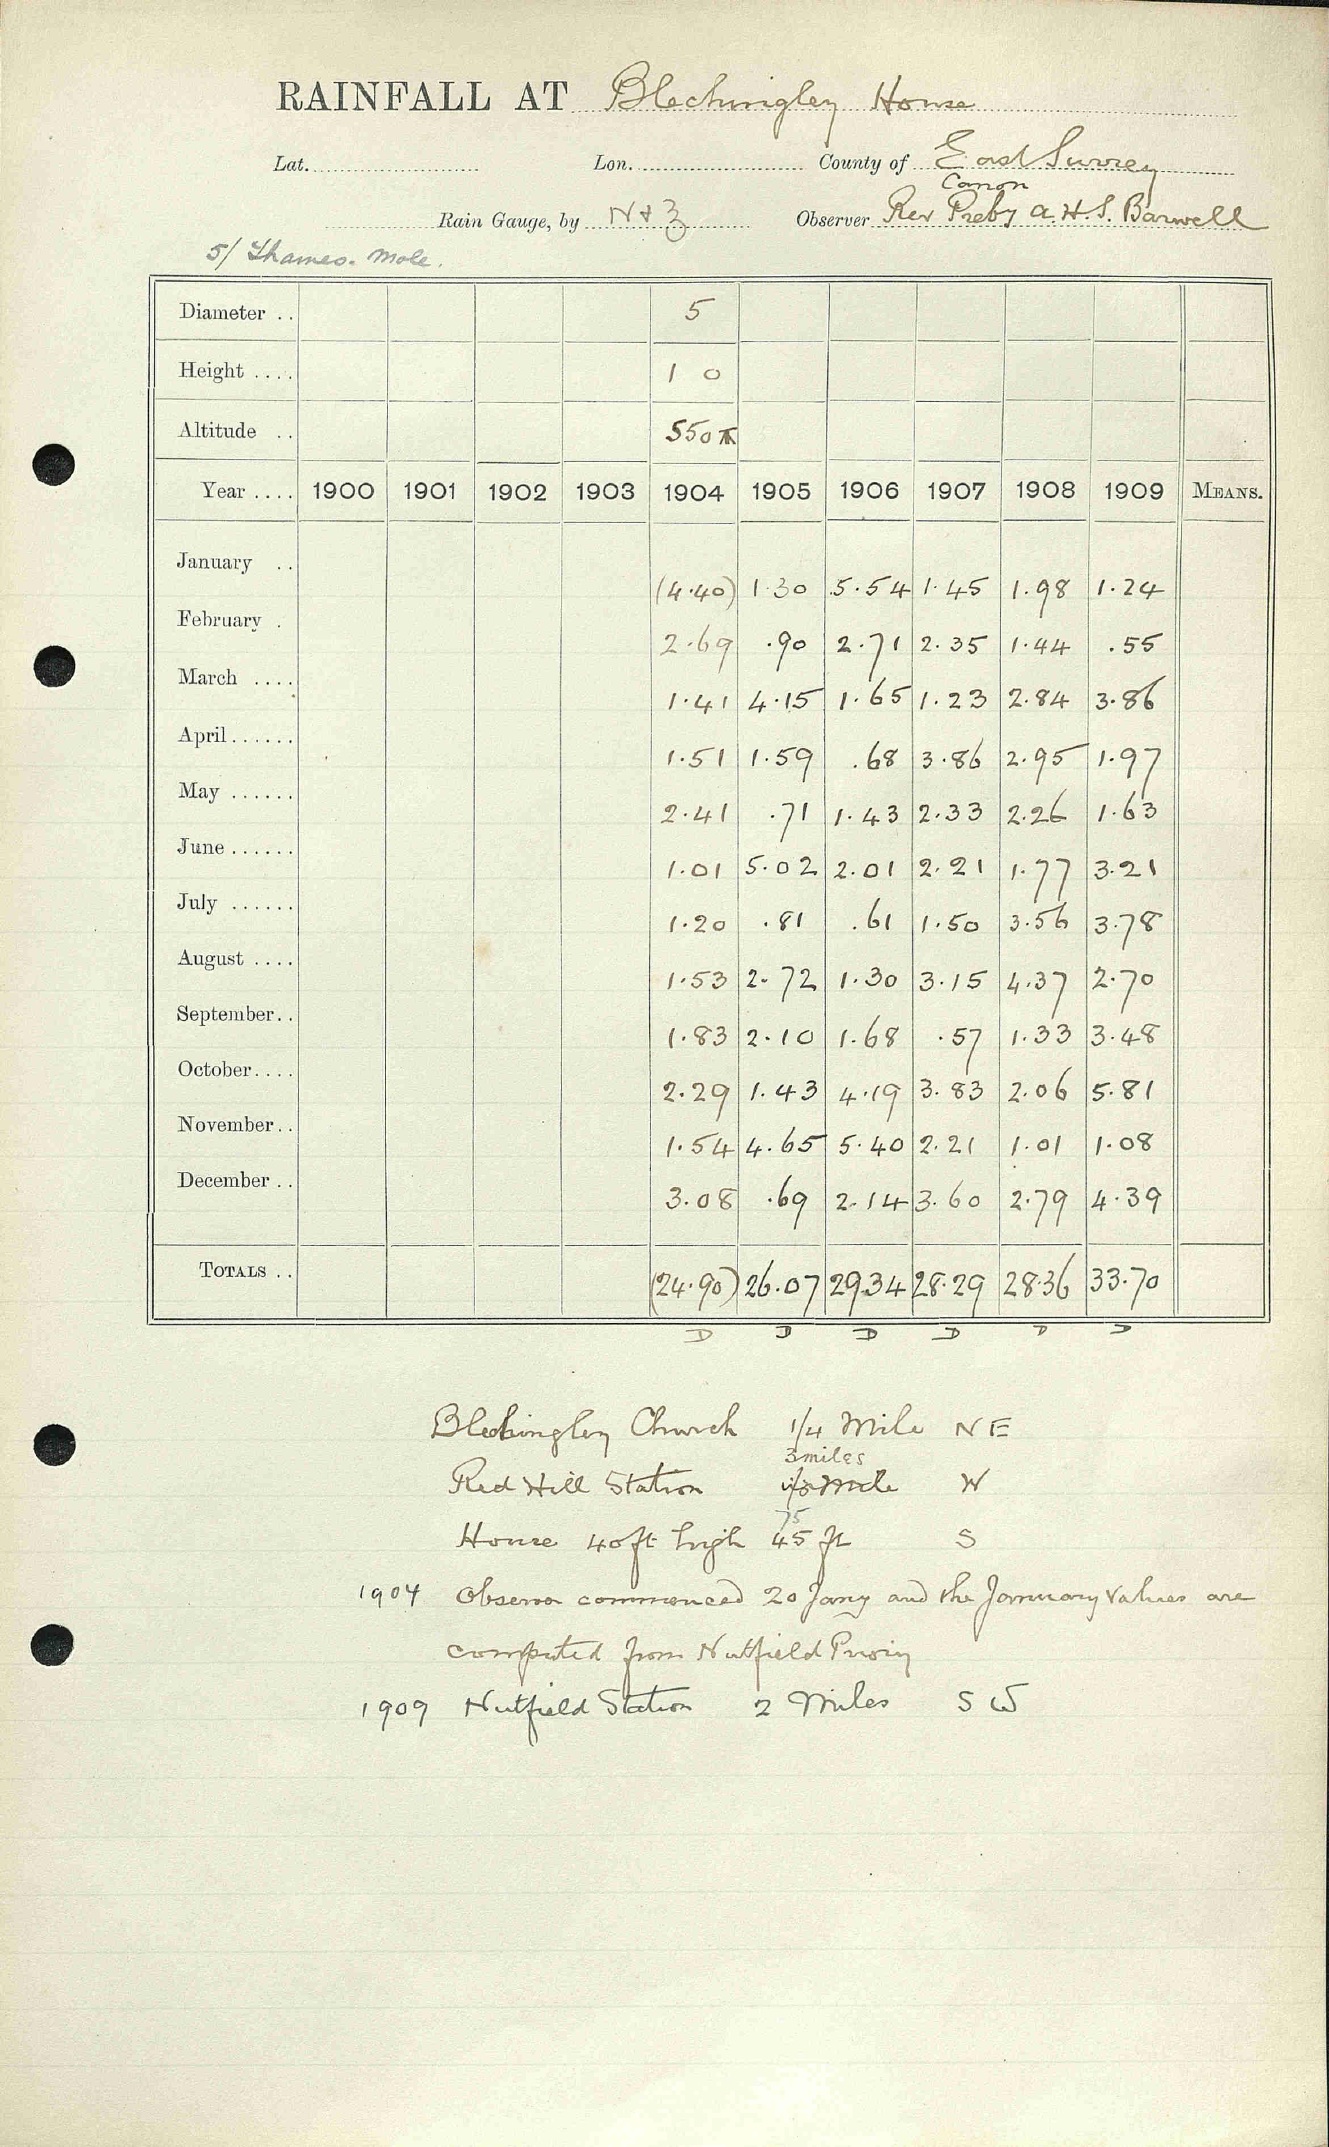 RAINFALL AT Blechingley House
Lat. Lon. County of East Surrey
Canon
Rain Gauge, by N & Z Observer Rev Preby A. H. S. Barwell
5/ Thames. Mole.
Diameter .. 5
Height .... 1 0
Altitude .. 550
Year .... 1900 1901 1902 1903 1904 1905 1906 1907 1908 1909 MEANS.
January .. (4.40) 1.30 5.54 1.45 1.98 1.24
February . 2.69 .90 2.71 2.35 1.44 .55
March .... 1.41 4.15 1.65 1.23 2.84 3.86
April ...... 1.51 1.59 .68 3.86 2.95 1.97
May ...... 2.41 .71 1.43 2.33 2.26 1.63
June ...... 1.01 5.02 2.01 2.21 1.77 3.21
July ...... 1.20 .81 .61 1.50 3.56 3.78
August .... 1.53 2.72 1.30 3.15 4.37 2.70
September.. 1.83 2.10 1.68 .57 1.33 3.48
October.... 2.29 1.43 4.19 3.83 2.06 5.81
November.. 1.54 4.65 5.40 2.21 1.01 1.08
December .. 3.08 .69 2.14 3.60 2.79 4.39
TOTALS .. (24.90) 26.07 29.34 28.29 28.36 33.70
D D D D D D
Blechingley Church 1/4 Mile N E
3 miles
Red Hill Station Mile W
75
House 40ft high 45 ft S
1904 Observer commenced 20 Jany and the January values are
computed from Nutfield Priory
1909 Nutfield Station 2 Miles S W